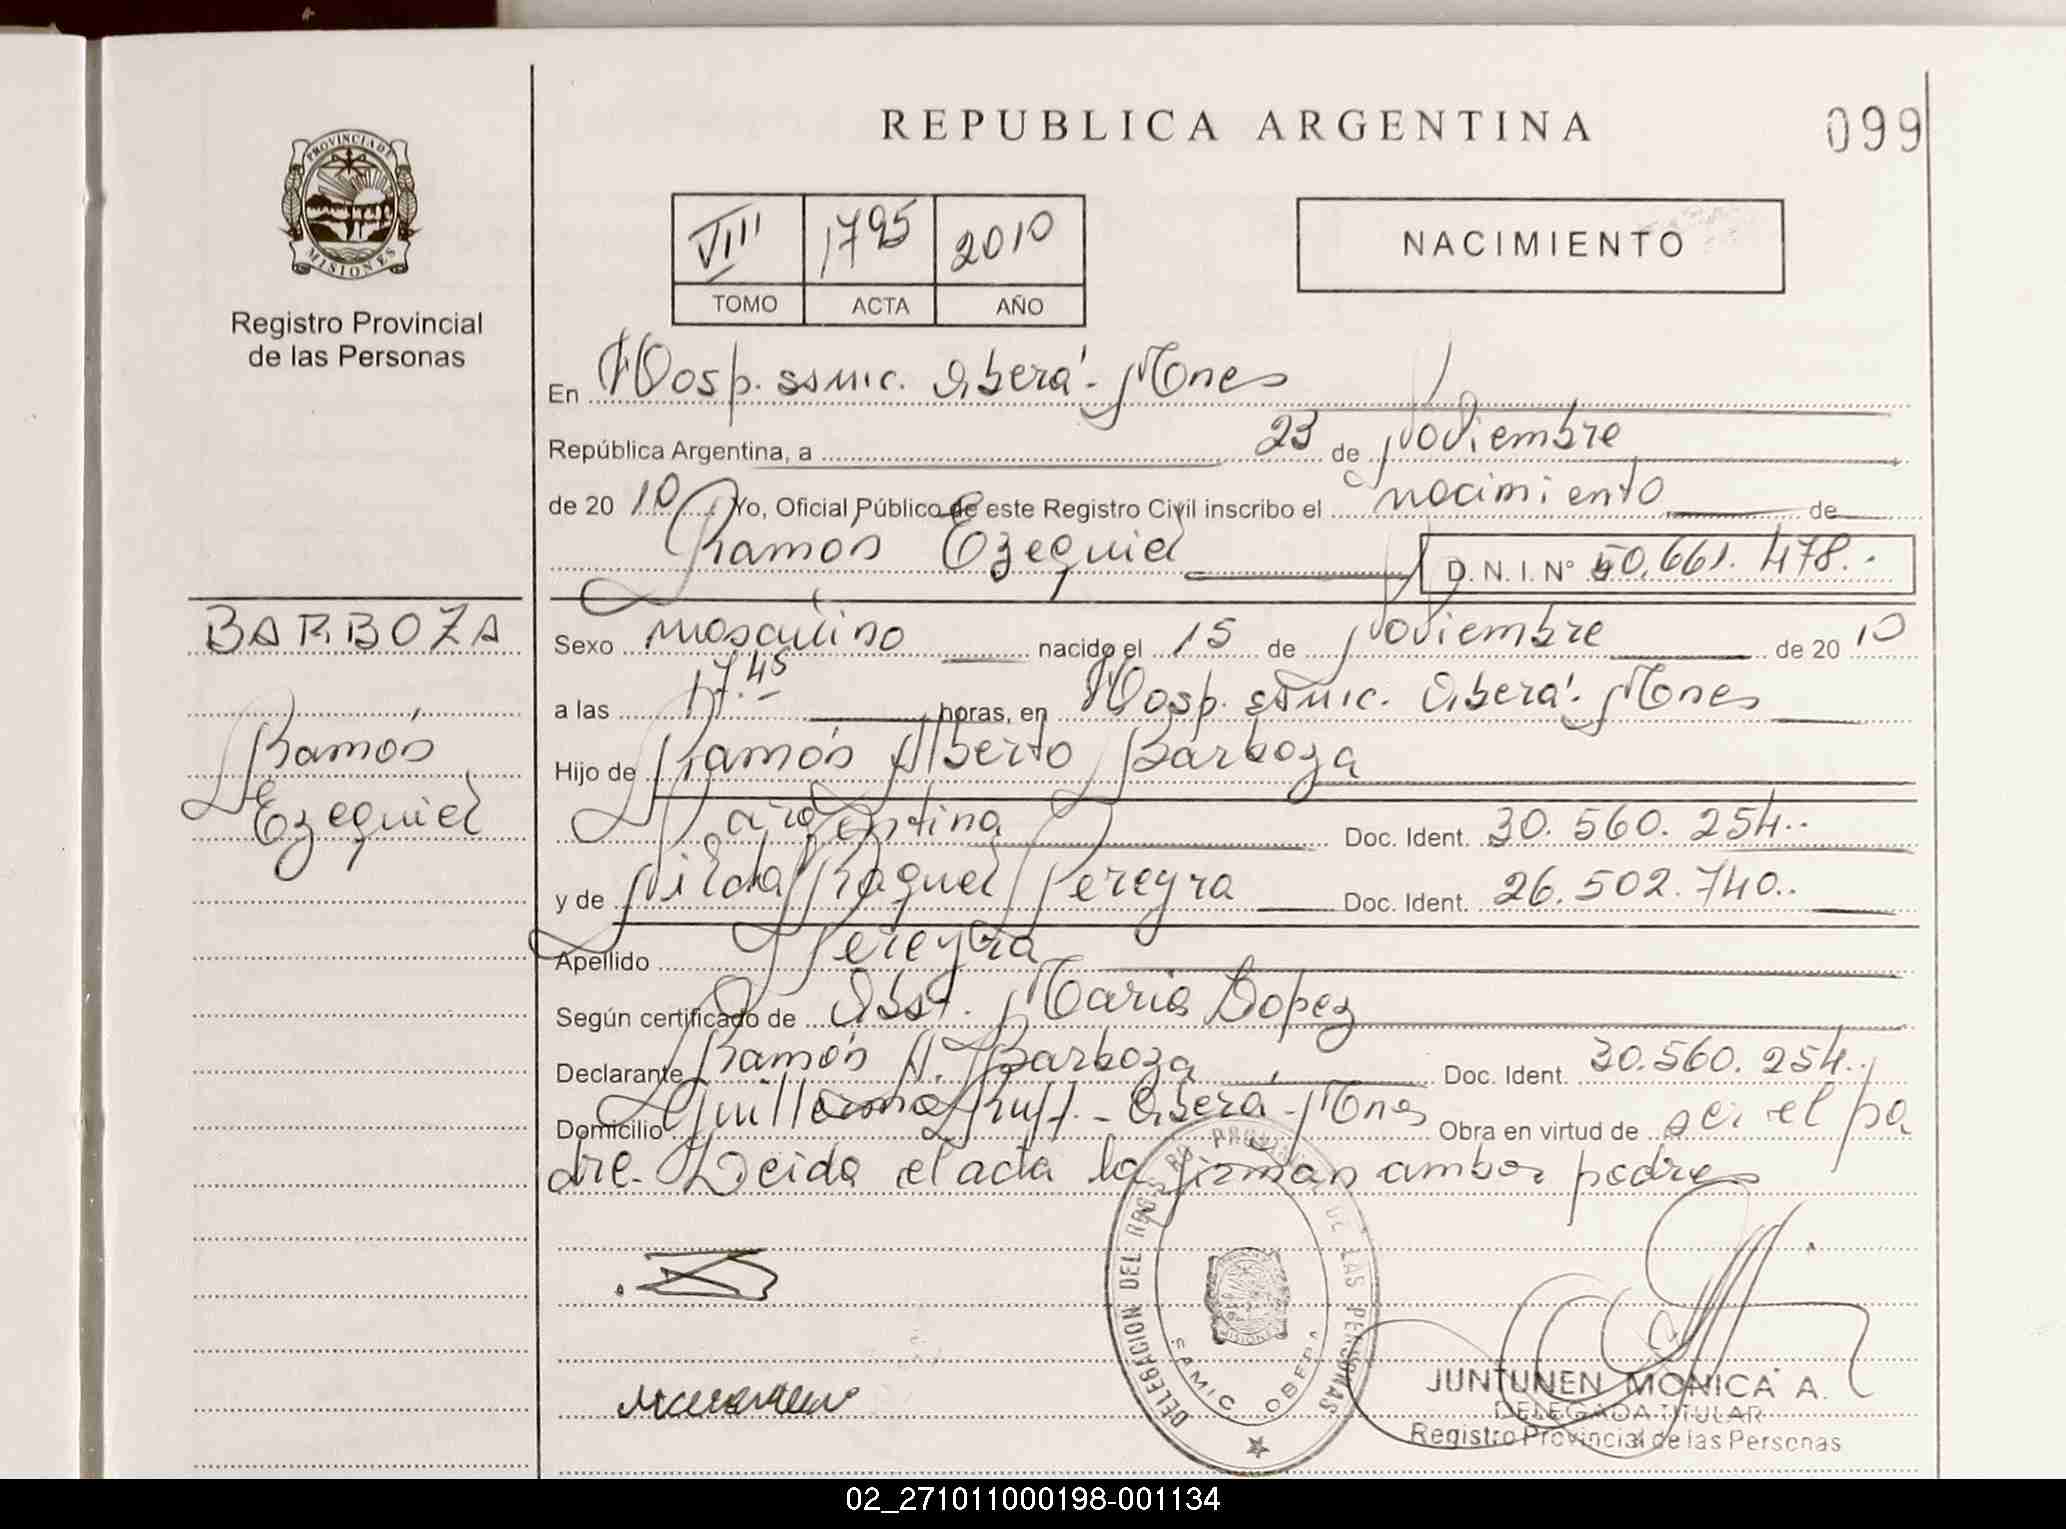 REPUBLICA ARGENTINA
099
PROVINCIA DE MISIONES
Registro Provincial
de las Personas
VIII 1795 2010
TOMO ACTA AÑO
NACIMIENTO
En Hosp. SAMIC. Oberá - Mnes
República Argentina, a 23 de Noviembre
de 2010 Yo, Oficial Público de este Registro Civil inscribo el nacimiento de
Ramón Ezequiel D. N. I. N° 50.661.478.-
BARBOZA
Ramón
Ezequiel
Sexo masculino nacido el 15 de Noviembre de 2010
a las 17.45 horas, en Hosp. SAMIC. Oberá - Mnes
Hijo de Ramón Alberto Barboza
argentino Doc. Ident. 30.560.254.-
y de Nilda Raquel Pereyra Doc. Ident. 26.502.740.-
Apellido Pereyra
Según certificado de Obst. Maria Lopez
Declarante Ramón A. Barboza Doc. Ident. 30.560.254.-
Domicilio Guillermo Ruff. - Oberá - Mnes Obra en virtud de ser el pa
dre. Leida el acta la firman ambos padres
DELEGACION DEL REGISTRO PROVINCIAL DE LAS PERSONAS
MISIONES
SAMIC OBERA
JUNTUNEN MONICA A.
DELEGADA TITULAR
Registro Provincial de las Personas
02_271011000198-001134